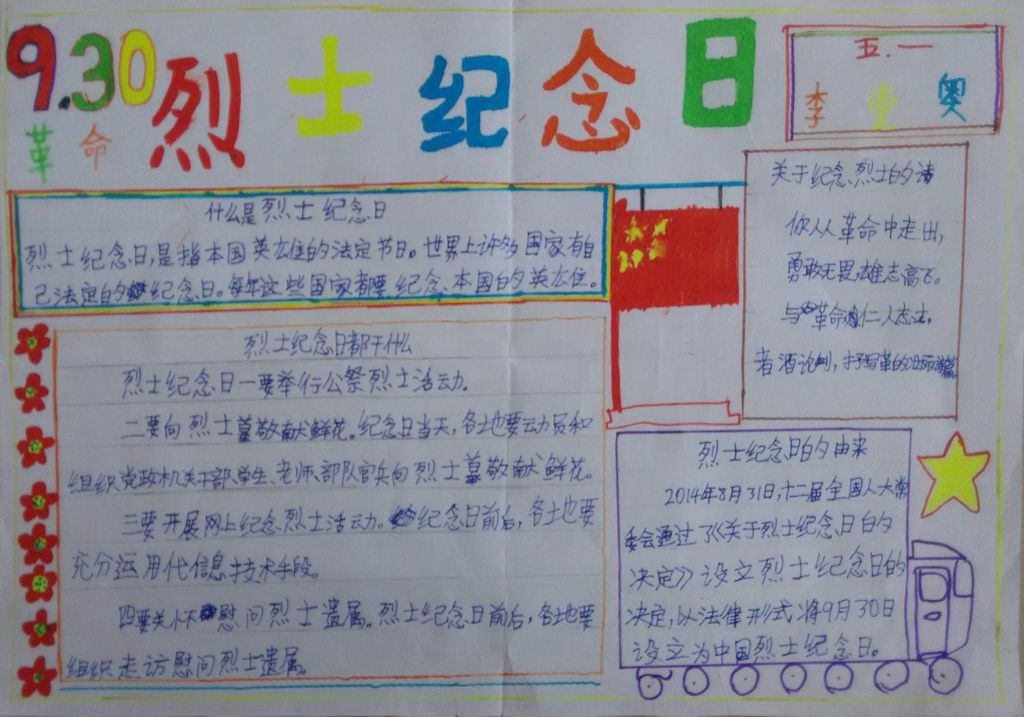 9.30烈士纪念日
革命
五.一
李堂奥
什么是烈士纪念日
烈士纪念日,是指本国英雄的法定节日。世界上许多国家有自
己法定的纪念日。每年这些国家都要纪念本国的英雄。
烈士纪念日都干什么
烈士纪念日一要举行公祭烈士活动。
二要向烈士墓敬献鲜花。纪念日当天,各地要动员和
组织党政机关干部、学生、老师、部队官兵向烈士墓敬献鲜花。
三要开展网上纪念烈士活动。纪念日前后,各地也要
充分运用代信息技术手段。
四要关怀慰问烈士遗属。烈士纪念日前后,各地也要
组织走访慰问烈士遗属。
关于纪念烈士的诗
你从革命中走出,
勇敢无畏雄志高飞。
与革命仁人志士,
者酒论
烈士纪念日的由来
2014年8月31日,十二届全国人大常
委会通过了《关于烈士纪念日的
决定》设立烈士纪念日的
决定,以法律形式将9月30日
设立为中国烈士纪念日。